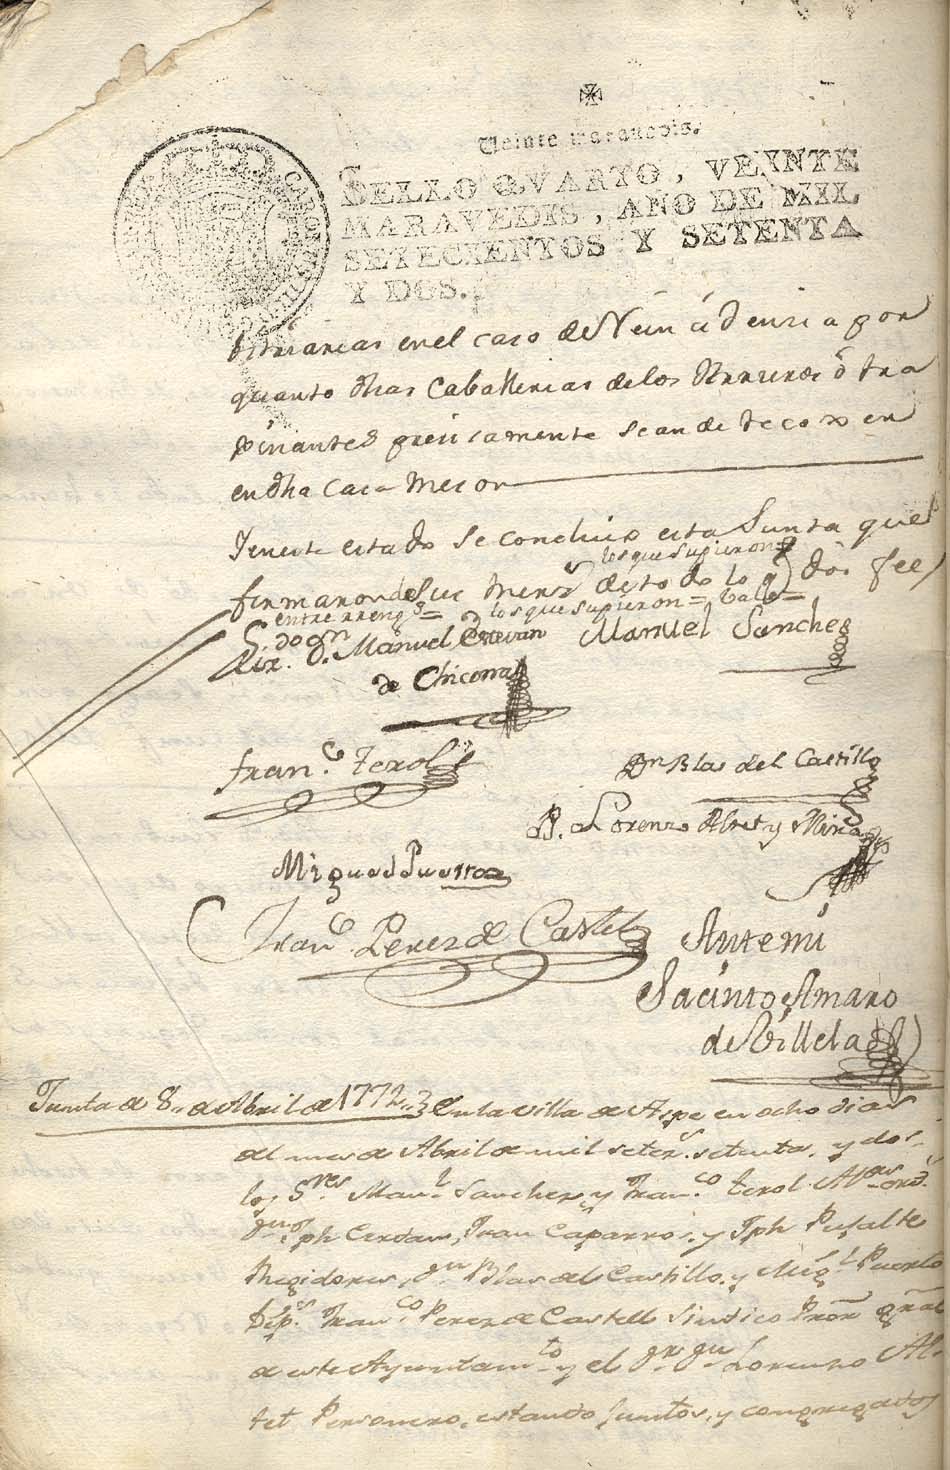 Veinte maravedis.
SELLO QVARTO, VEINTE
MARAVEDIS, AÑO DE MIL
SETECIENTOS Y SETENTA
Y DOS.
en el caso de por
quanto dhas Caballerias de los Arrieros ó tra
ginantes precisamente se an de recoxer en
en dha casa Meson
Yeneste estado se concluió esta Junta que
los que supieron
firmaron de sus Merz.s de todo lo q doi fee
entre rreng.s = los que supieron = balg =
Liz.do Dn. Manuel Estevan Manuel Sanchez
de Chicona
Fran.co Terol Dn Blas del Castillo
D. Lorenzo Altet y Mira
Miguel Puerto
Fran.co Perez de Castell Antemi
Jacinto Amaro
de Villela
Junta de 8.. de Abril de 1772.. En la villa de Aspe en ocho dias
del mes de Abril de mil setez.s setenta, y dos
los S.res Man.l Sanchez, y Fran.co Terol Al.des ord.s
dn Jph Cerdan, Fran Caparros, y Jph Pujalte
Regidores, dn Blas del Castillo, y Mig.l Puerto
Dip.s Fran.co Perez de Castell Sindico Pror gral
de este Ayuntam.to y el dr dn Lorenzo Al-
tet Personero, estando juntos, y congregados